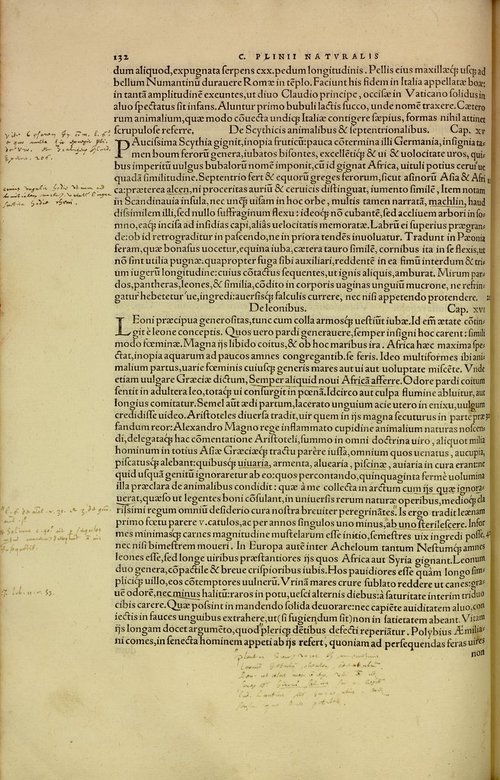 132 C. PLINII NATVRALIS
dum aliquod, expugnata serpens cxx. pedum longitudinis. Pellis eius maxillæq́; usq; ad
bellum Numantinũ durauere Romæ in tẽplo. Faciunt his fidem in Italia appellatæ boæ:
in tantã amplitudinẽ exeuntes, ut diuo Claudio principe, occisæ in Vaticano solidus in
aluo spectatus sit infans. Aluntur primo bubuli lactis succo, unde nomẽ traxere. Cætero
rum animalium, quæ modo cõuecta undiq; Italiæ contigere sæpius, formas nihil attinet
scrupulose referre. De Scythicis animalibus & septentrionalibus. Cap. xv
PAucissima Scythia gignit, inopia fruticũ: pauca cõtermina illi Germania, insignia ta
men boum ferorũ genera, iubatos bisontes, excellẽtiq; & ui & uelocitate uros, qui
bus imperitũ uulgus bubalorũ nomẽ imponit, cũ id gignat Africa, uituli potius ceruiue
quadã similitudine. Septentrio fert & equorũ greges ferorum, sicut asinorũ Asia & Afri
ca: præterea alcen, ni proceritas auriũ & ceruicis distinguat, iumento similẽ. Item natam
in Scandinauia insula, nec unq̃ uisam in hoc orbe, multis tamen narratã, machlin, haud
dissimilem illi, sed nullo suffraginum flexu: ideoq́; nõ cubantẽ, sed accliuem arbori in som
mno, eaq́; incisa ad insidias capi, aliàs uelocitatis memoratæ. Labrũ ei superius prægran
de: ob id retrograditur in pascendo, ne in priora tendẽs inuoluatur. Tradunt in Pæonia
feram, quæ bonasus uocetur, equina iuba, cætera tauro similẽ, cornibus ita in se flexis, ut
nõ sint utilia pugnæ. quapropter fuga sibi auxiliari, reddentẽ in ea fimũ interdum & tri
um iugerũ longitudine: cuius cõtactus sequentes, ut ignis aliquis, amburat. Mirum par
dos, pantheras, leones, & similia, cõdito in corporis uaginas unguiũ mucrone, ne refrin
gatur hebeteturue, ingredi: auersisq́; falculis currere, nec nisi appetendo protendere.
De leonibus. Cap. xvi
LEoni præcipua generositas, tunc cum colla armosq́; uestiũt iubæ. Id em̃ ætate cõtin
git è leone conceptis. Quos uero pardi generauere, semper insigni hoc carent: simili
modo fœminæ. Magna ijs libido coitus, & ob hoc maribus ira. Africa hæc maxima spe
ctat, inopia aquarum ad paucos amnes congregantib. se feris. Ideo multiformes ibi ani
malium partus, uarie fœminis cuiusq; generis mares aut ui aut uoluptate miscẽte. Vnde
etiam uulgare Græciæ dictum, Semper aliquid noui Africã afferre. Odore pardi coitum
sentit in adultera leo, totaq́; ui consurgit in pœnã. Idcirco aut culpa flumine abluitur, aut
longius comitatur. Semel aũt ædi partum, lacerato unguium acie utero in enixu, uulgum
credidisse uideo. Aristoteles diuersa tradit, uir quem in ijs magna secuturus in parte præ
fandum reor: Alexandro Magno rege inflammato cupidine animalium naturas noscen
di, delegataq́; hac cõmentatione Aristoteli, summo in omni doctrina uiro, aliquot milia
hominum in totius Asiæ Græciæq́; tractu parêre iussa, omnium quos uenatus, aucupia,
piscatusq́; alebant: quibusq́; uiuaria, armenta, aluearia, piscinæ, auiaria in cura erant: ne
quid usquã genitũ ignoraretur ab eo: quos percontando, quinquaginta fermè uolumina
illa præclara de animalibus condidit: quæ à me collecta in arctum cum ijs quæ ignora
uerat, quæso ut legentes boni cõsulant, in uniuersis rerum naturæ operibus, medioq́; cla
rissimi regum omniũ desiderio cura nostra breuiter peregrinãtes. Is ergo tradit leænam
primo fœtu parere v. catulos, ac per annos singulos uno minus, ab uno sterilescere. Infor
mes minimasq́; carnes magnitudine mustelarum esse initio, semestres uix ingredi posse,
nec nisi bimestres moueri. In Europa autẽ inter Acheloum tantum Nestumq́; amnes
leones esse, sed longe uiribus præstantiores ijs quos Africa aut Syria gignant. Leonum
duo genera, cõpactile & breue crispioribus iubis. Hos pauidiores esse quàm longo sim
pliciq́; uillo, eos cõtemptores uulnerũ. Vrinã mares crure sublato reddere ut canes: gra
uẽ odorẽ, nec minus halitũ: raros in potu, uesci alternis diebus: à saturitate interim triduo
cibis carere. Quæ possint in mandendo solida deuorare: nec capiẽte auiditatem aluo, con
iectis in fauces unguibus extrahere, ut (si fugiendum sit) non in satietate abeant. Vitam
ijs longam docet argumẽto, quod pleriq́; dẽtibus defecti reperiãtur. Polybius Æmilia
ni comes, in senecta hominem appeti ab ijs refert, quoniam ad persequendas feras uires
non